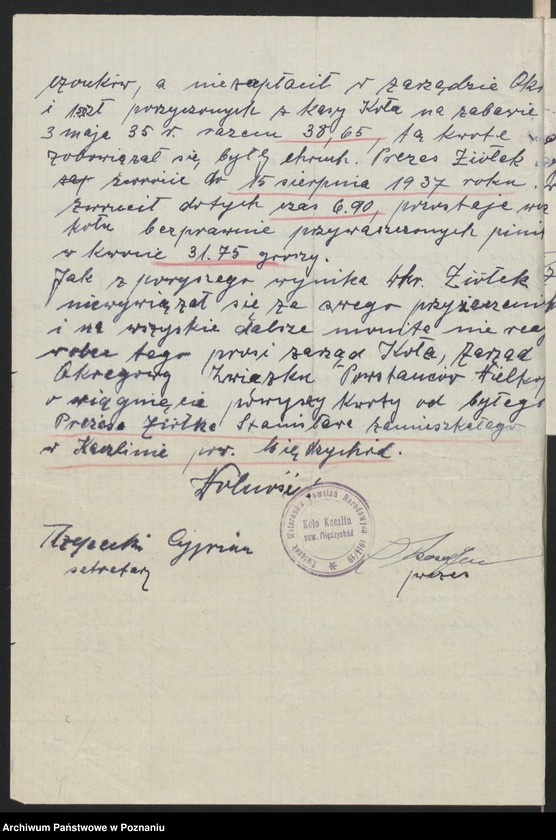 członków, a niezapłacił w zarządzie Okr
i 1 zł pożyczonych z kasy Koła na zabawie
3 maja 35 r. razem 38,65, tą kwotę
zobowiązał się były chwil. Prezes Ziołek
zwrócić do 15 sierpnia 1937 roku.
zwrócił dotych czas 6.90, pozostaje
koła bezprawnie przywłaszczonych
w kwocie 31.75 groszy.
Jak z powyszego wynika dhr. Ziółek
niewywiązał się za swego przyżeczenia
i na wszyskie dalsze monita nie reag
wobec tego prosi zarząd Koła, Zarząd
Okręgowy Związku Powstańców Wielkop
o ściągnięcie powyszy kwoty od byłego
Prezesa Ziółka Stanisława zamieszkałego
w Kaczlinie pow. Międzychód.
Wolność!
Związek Weteranów Powstań Narodowych 1914/19
Koło Kaczlin
pow. Międzychód
Cyprian
sekretarz
prezes
Archiwum Państwowe w Poznaniu